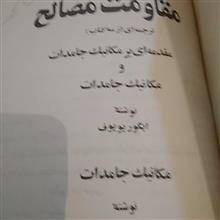 مقاومت مصالح
ترجمه‌ای از سه کتاب :
مقدمه‌ای بر مکانیک جامدات
و
مکانیک جامدات
نوشته
ایگور پوپوف
مکانیک جامدات
نوشته